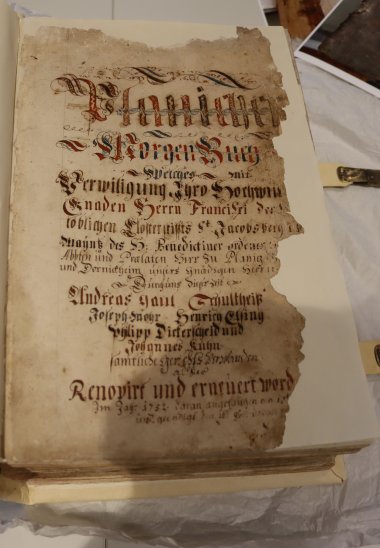 Planicher
Morgen Buch
Welches mit
Verwiligung Ihro Hochwür
Gnaden Herrn Francisci der
löblichen Closterstiffts St Jacobsberg
Mayntz des H: Benedictiner ordens
Abbten und Praelaten Herr zu Planig
und Dornickheim unsers gnädigen Herrn
Andreas Schultheiß
Joseph Henrich Elsing
Philipp Dickerscheid und
Johannes Kuhn
sämtliche
Renovirt und erneuert word
Im Jahr 1752 daran angefangen
und geendigt den